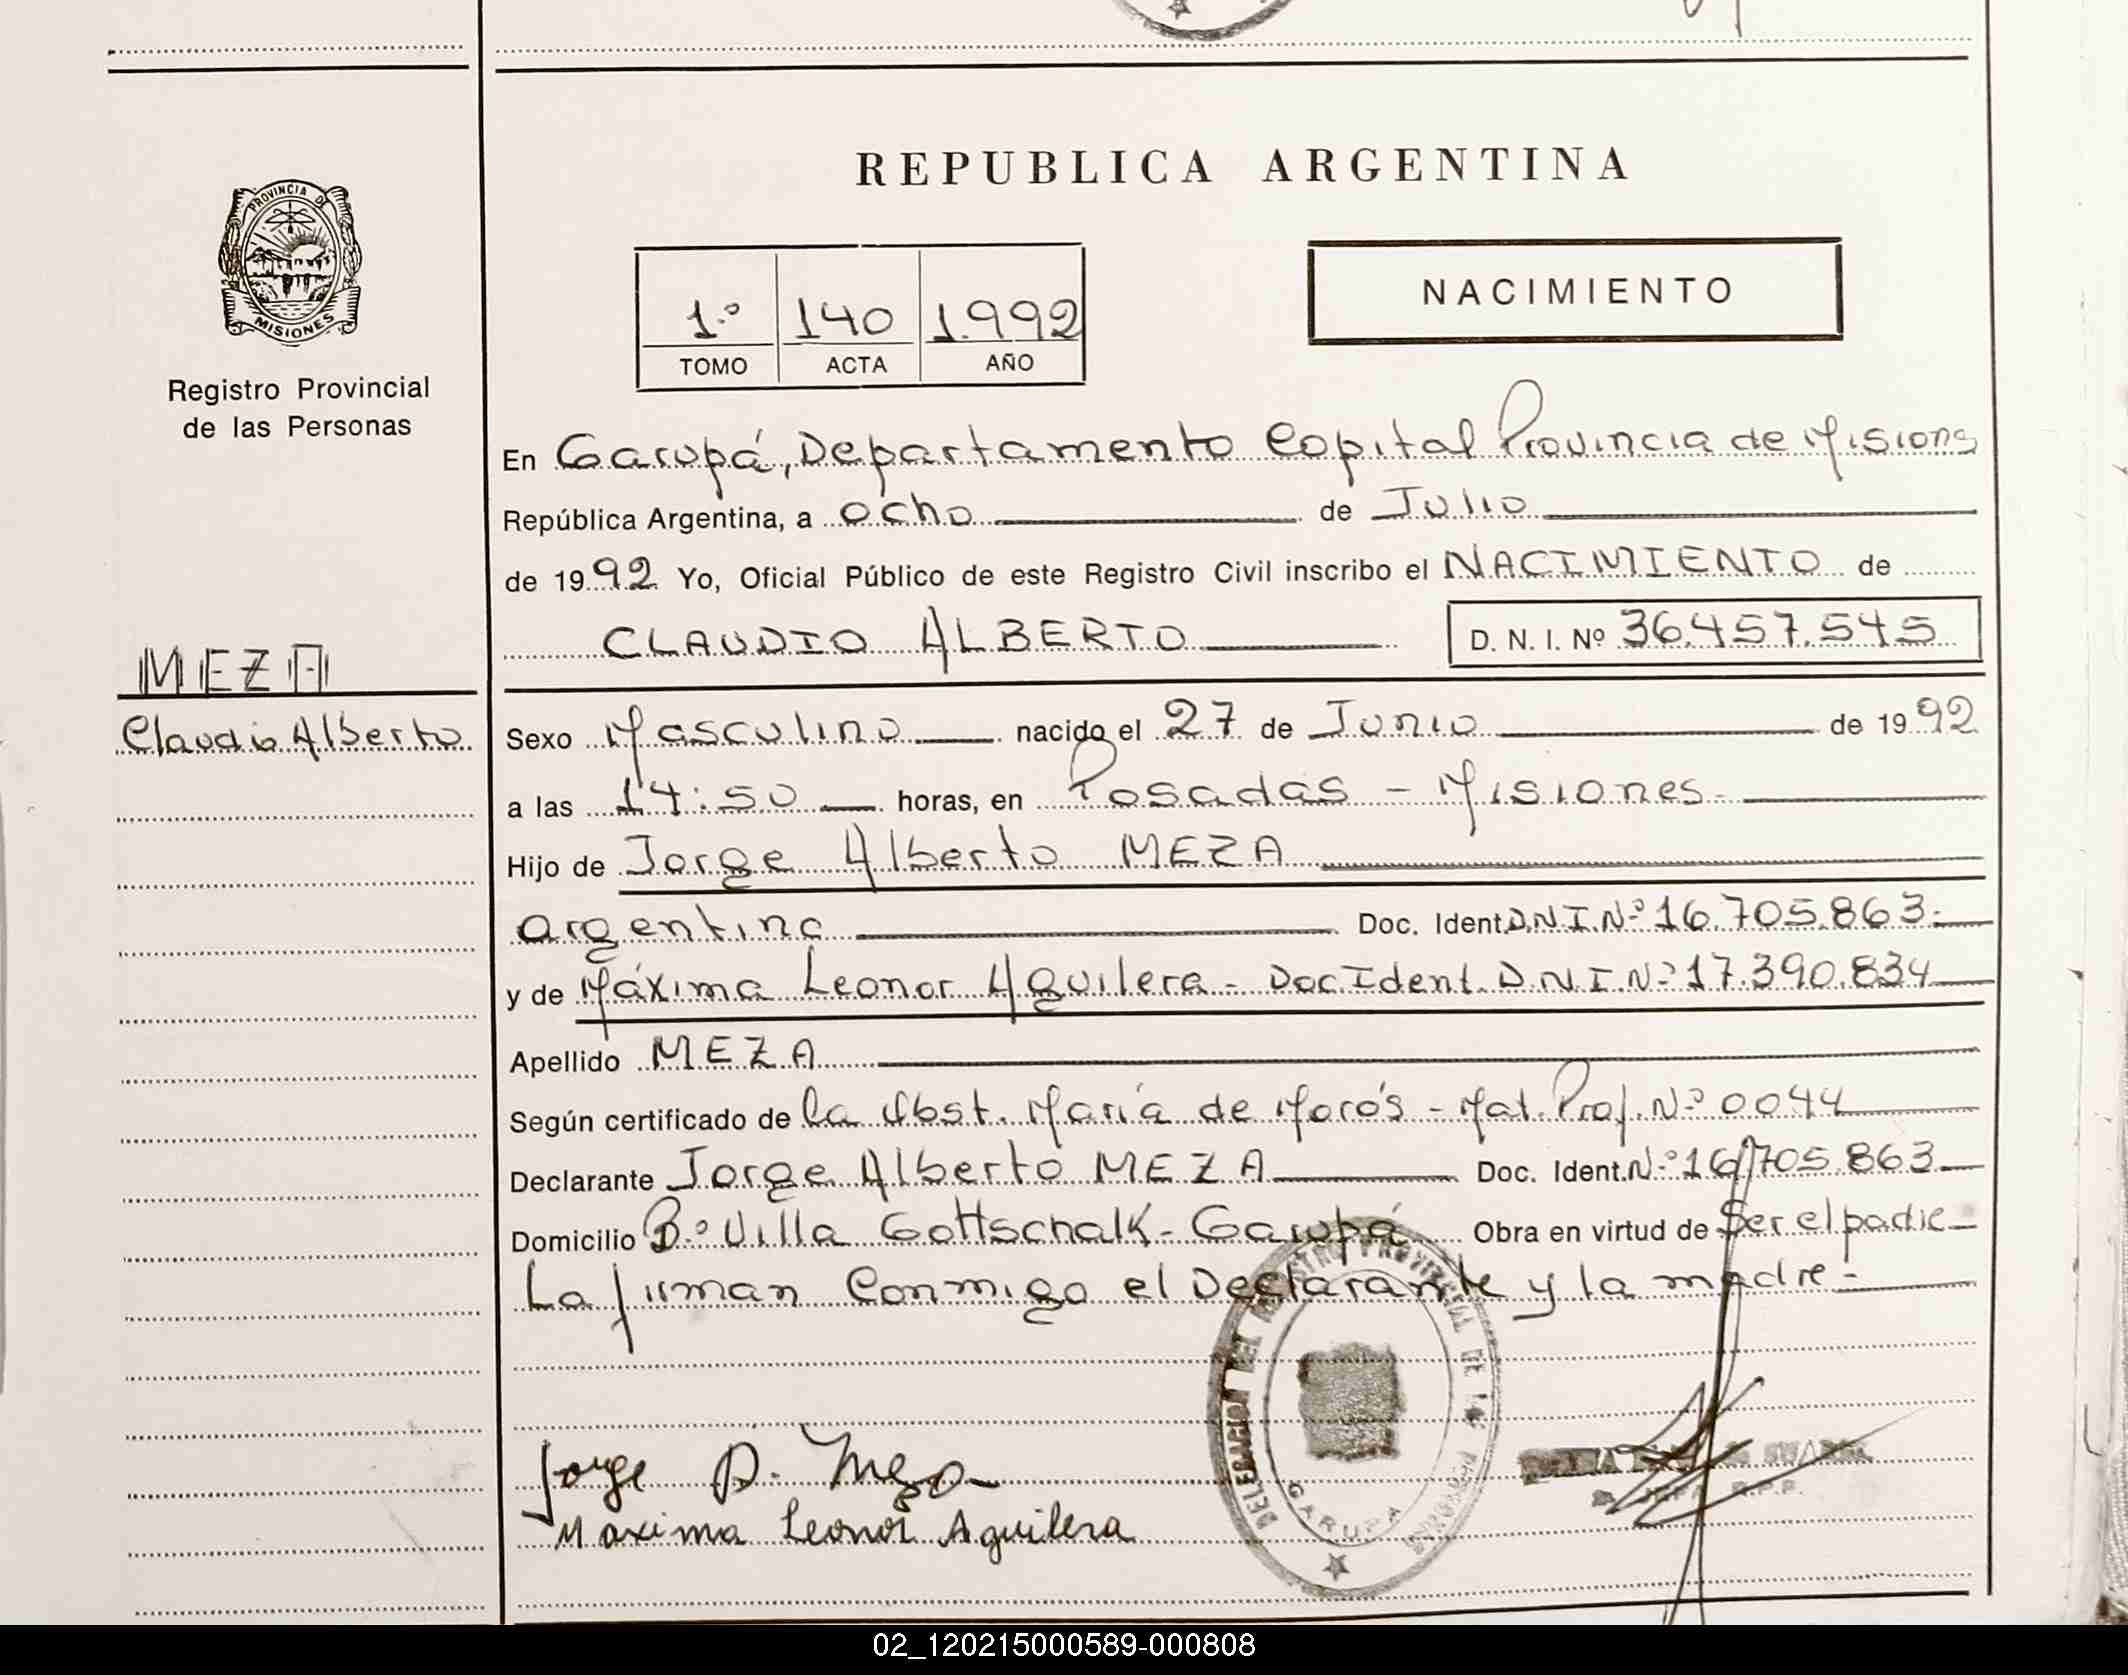 REPUBLICA ARGENTINA
PROVINCIA DE
MISIONES
Registro Provincial
de las Personas
1.º 140 1.992
TOMO ACTA AÑO
NACIMIENTO
En Garupá, Departamento Capital Provincia de Misiones
República Argentina, a ocho de Julio
de 1992 Yo, Oficial Público de este Registro Civil inscribo el NACIMIENTO de
CLAUDIO ALBERTO D. N. I. Nº 36.457.545
MEZA
Claudio Alberto
Sexo Masculino nacido el 27 de Junio de 1992
a las 14:50 horas, en Posadas - Misiones.
Hijo de Jorge Alberto MEZA
argentino Doc. Ident. D.N.I.Nº 16.705.863.
y de Máxima Leonor Aguilera - Doc Ident. D.N.I.Nº 17.390.834
Apellido MEZA
Según certificado de la Obst. María de Morós - Mat. Prof. Nº 0044
Declarante Jorge Alberto MEZA Doc. Ident. Nº 16.705.863
Domicilio Bº Villa Gottschalk - Garupá Obra en virtud de Ser el padre
La firman Conmigo el Declarante y la madre.
Jorge A. Meza
Maxima Leonor Aguilera
DELEGACION DEL REGISTRO PROVINCIAL DE LAS PERSONAS
GARUPA
R.P.P.
02_120215000589-000808